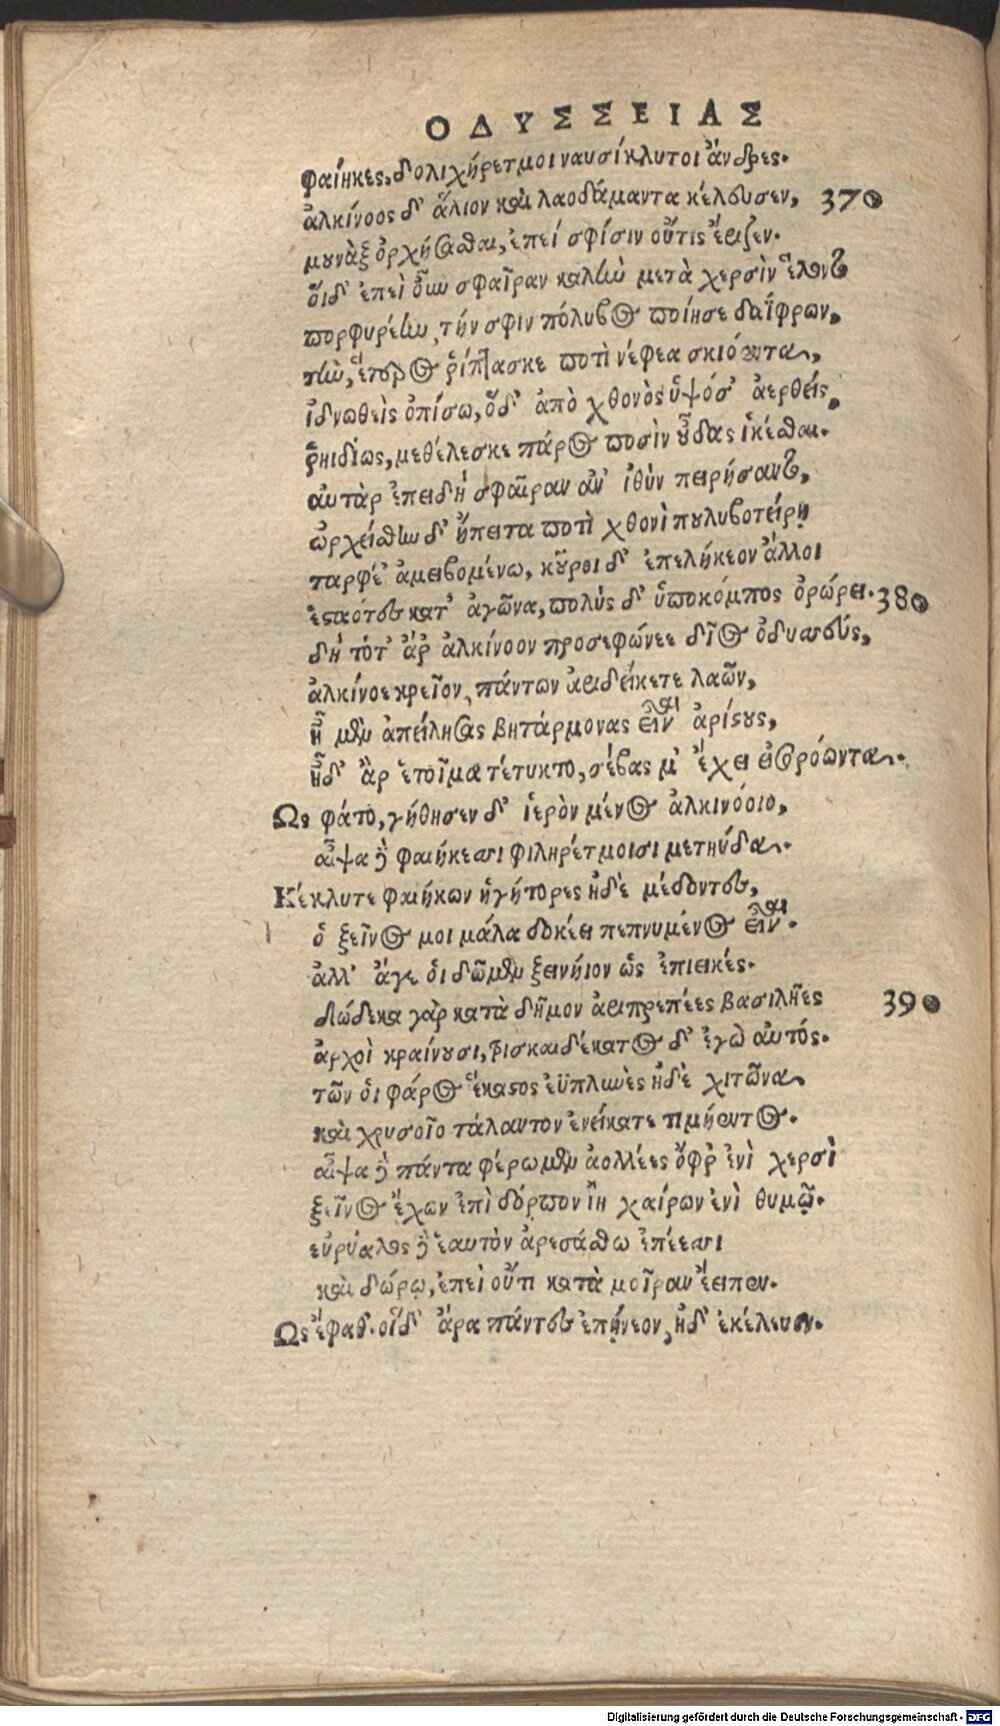 ΟΔΥΣΣΕΙΑΣ
φαίηκες, δολιχήρετμοι ναυσίκλυτοι ἄνδρες.
ἀλκίνοος δ' ἅλιον καὶ λαοδάμαντα κέλευσεν, 370
μουνὰξ ὀρχήσασθαι, ἐπεί σφίσιν οὔτις ἔριζεν.
οἵδ' ἐπεὶ οὖν σφαῖραν καλὴν μετὰ χερσὶν ἕλοντο
πορφυρέην, τήν σφιν πόλυβος ποίησε δαΐφρων,
τὴν, ἕτερος ῥίπτασκε ποτὶ νέφεα σκιόεντα,
ἰδνωθεὶς ὀπίσω, ὅδ' ἀπὸ χθονὸς ὑψόσ' ἀερθείς,
ῥηιδίως, μεθέλεσκε πάρος ποσὶν οὖδας ἱκέσθαι.
αὐτὰρ ἐπειδὴ σφαῖραν ἀν' ἰθὺν πειρήσαντο,
ὠρχείσθην δ' ἤπειτα ποτὶ χθονὶ πουλυβοτείρῃ
ταρφέ' ἀμειβομένω, κοῦροι δ' ἐπελήκεον ἄλλοι
ἑσταότες κατ' ἀγῶνα, πολὺς δ' ὑποκόμπος ὀρώρει. 380
δὴ τότ' ἄρ' ἀλκίνοον προσεφώνεε δῖος ὀδυσσεύς,
ἀλκίνοε κρεῖον, πάντων ἀριδείκετε λαῶν,
ἦ μὲν ἀπείλησας βητάρμονας εἶναι ἀρίστους,
ἦδ' ἂρ ἑτοῖμα τέτυκτο, σέβας μ' ἔχει εἰσορόωντα.
Ως φάτο, γήθησεν δ' ἱερὸν μένος ἀλκινόοιο,
αἶψα δὲ φαιήκεσσι φιληρέτμοισι μετηύδα.
Κέκλυτε φαιήκων ἡγήτορες ἠδὲ μέδοντες,
ὁ ξεῖνος μοι μάλα δοκέει πεπνυμένος εἶναι.
ἀλλ' ἄγε οἱ δῶμεν ξεινήιον ὡς ἐπιεικές.
δώδεκα γὰρ κατὰ δῆμον ἀριπρεπέες βασιλῆες 390
ἀρχοὶ κραίνουσι, τρισκαιδέκατος δ' ἐγὼ αὐτός.
τῶν οἱ φάρος ἕκαστος ἐϋπλυνὲς ἠδὲ χιτῶνα
καὶ χρυσοῖο τάλαντον ἐνείκατε τιμήεντος.
αἶψα δὲ πάντα φέρωμεν ἀολλέες ὄφρ' ἐνὶ χερσὶ
ξεῖνος ἔχων ἐπὶ δόρπον ἴῃ χαίρων ἐνὶ θυμῷ.
εὐρύαλος δὲ ἑαυτὸν ἀρεσάσθω ἐπέεσσι
καὶ δώρῳ, ἐπεὶ οὔτι κατὰ μοῖραν ἔειπεν.
Ως ἔφαθ'. οἵδ' ἄρα πάντες ἐπῄνεον, ἠδ' ἐκέλευον.
Digitalisierung gefördert durch die Deutsche Forschungsgemeinschaft - DFG